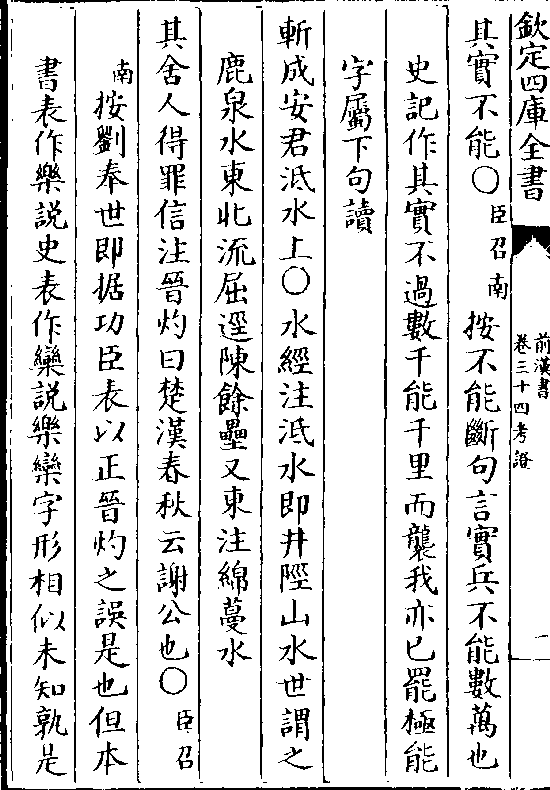 欽定四庫全書
前漢書
卷三十四考證
一
其實不能○臣召南按不能斷句言實兵不能數萬也
史記作其實不過數千能千里而襲我亦已罷極能
字屬下句讀
斬成安君泜水上○水經注泜水即井陘山水世謂之
鹿泉水東北流屈逕陳餘壘又東注綿蔓水
其舍人得罪信注晉灼曰楚漢春秋云謝公也○臣召
南按劉奉世即据功臣表以正晉灼之誤是也但本
書表作樂説史表作欒説樂欒字形相似未知孰是